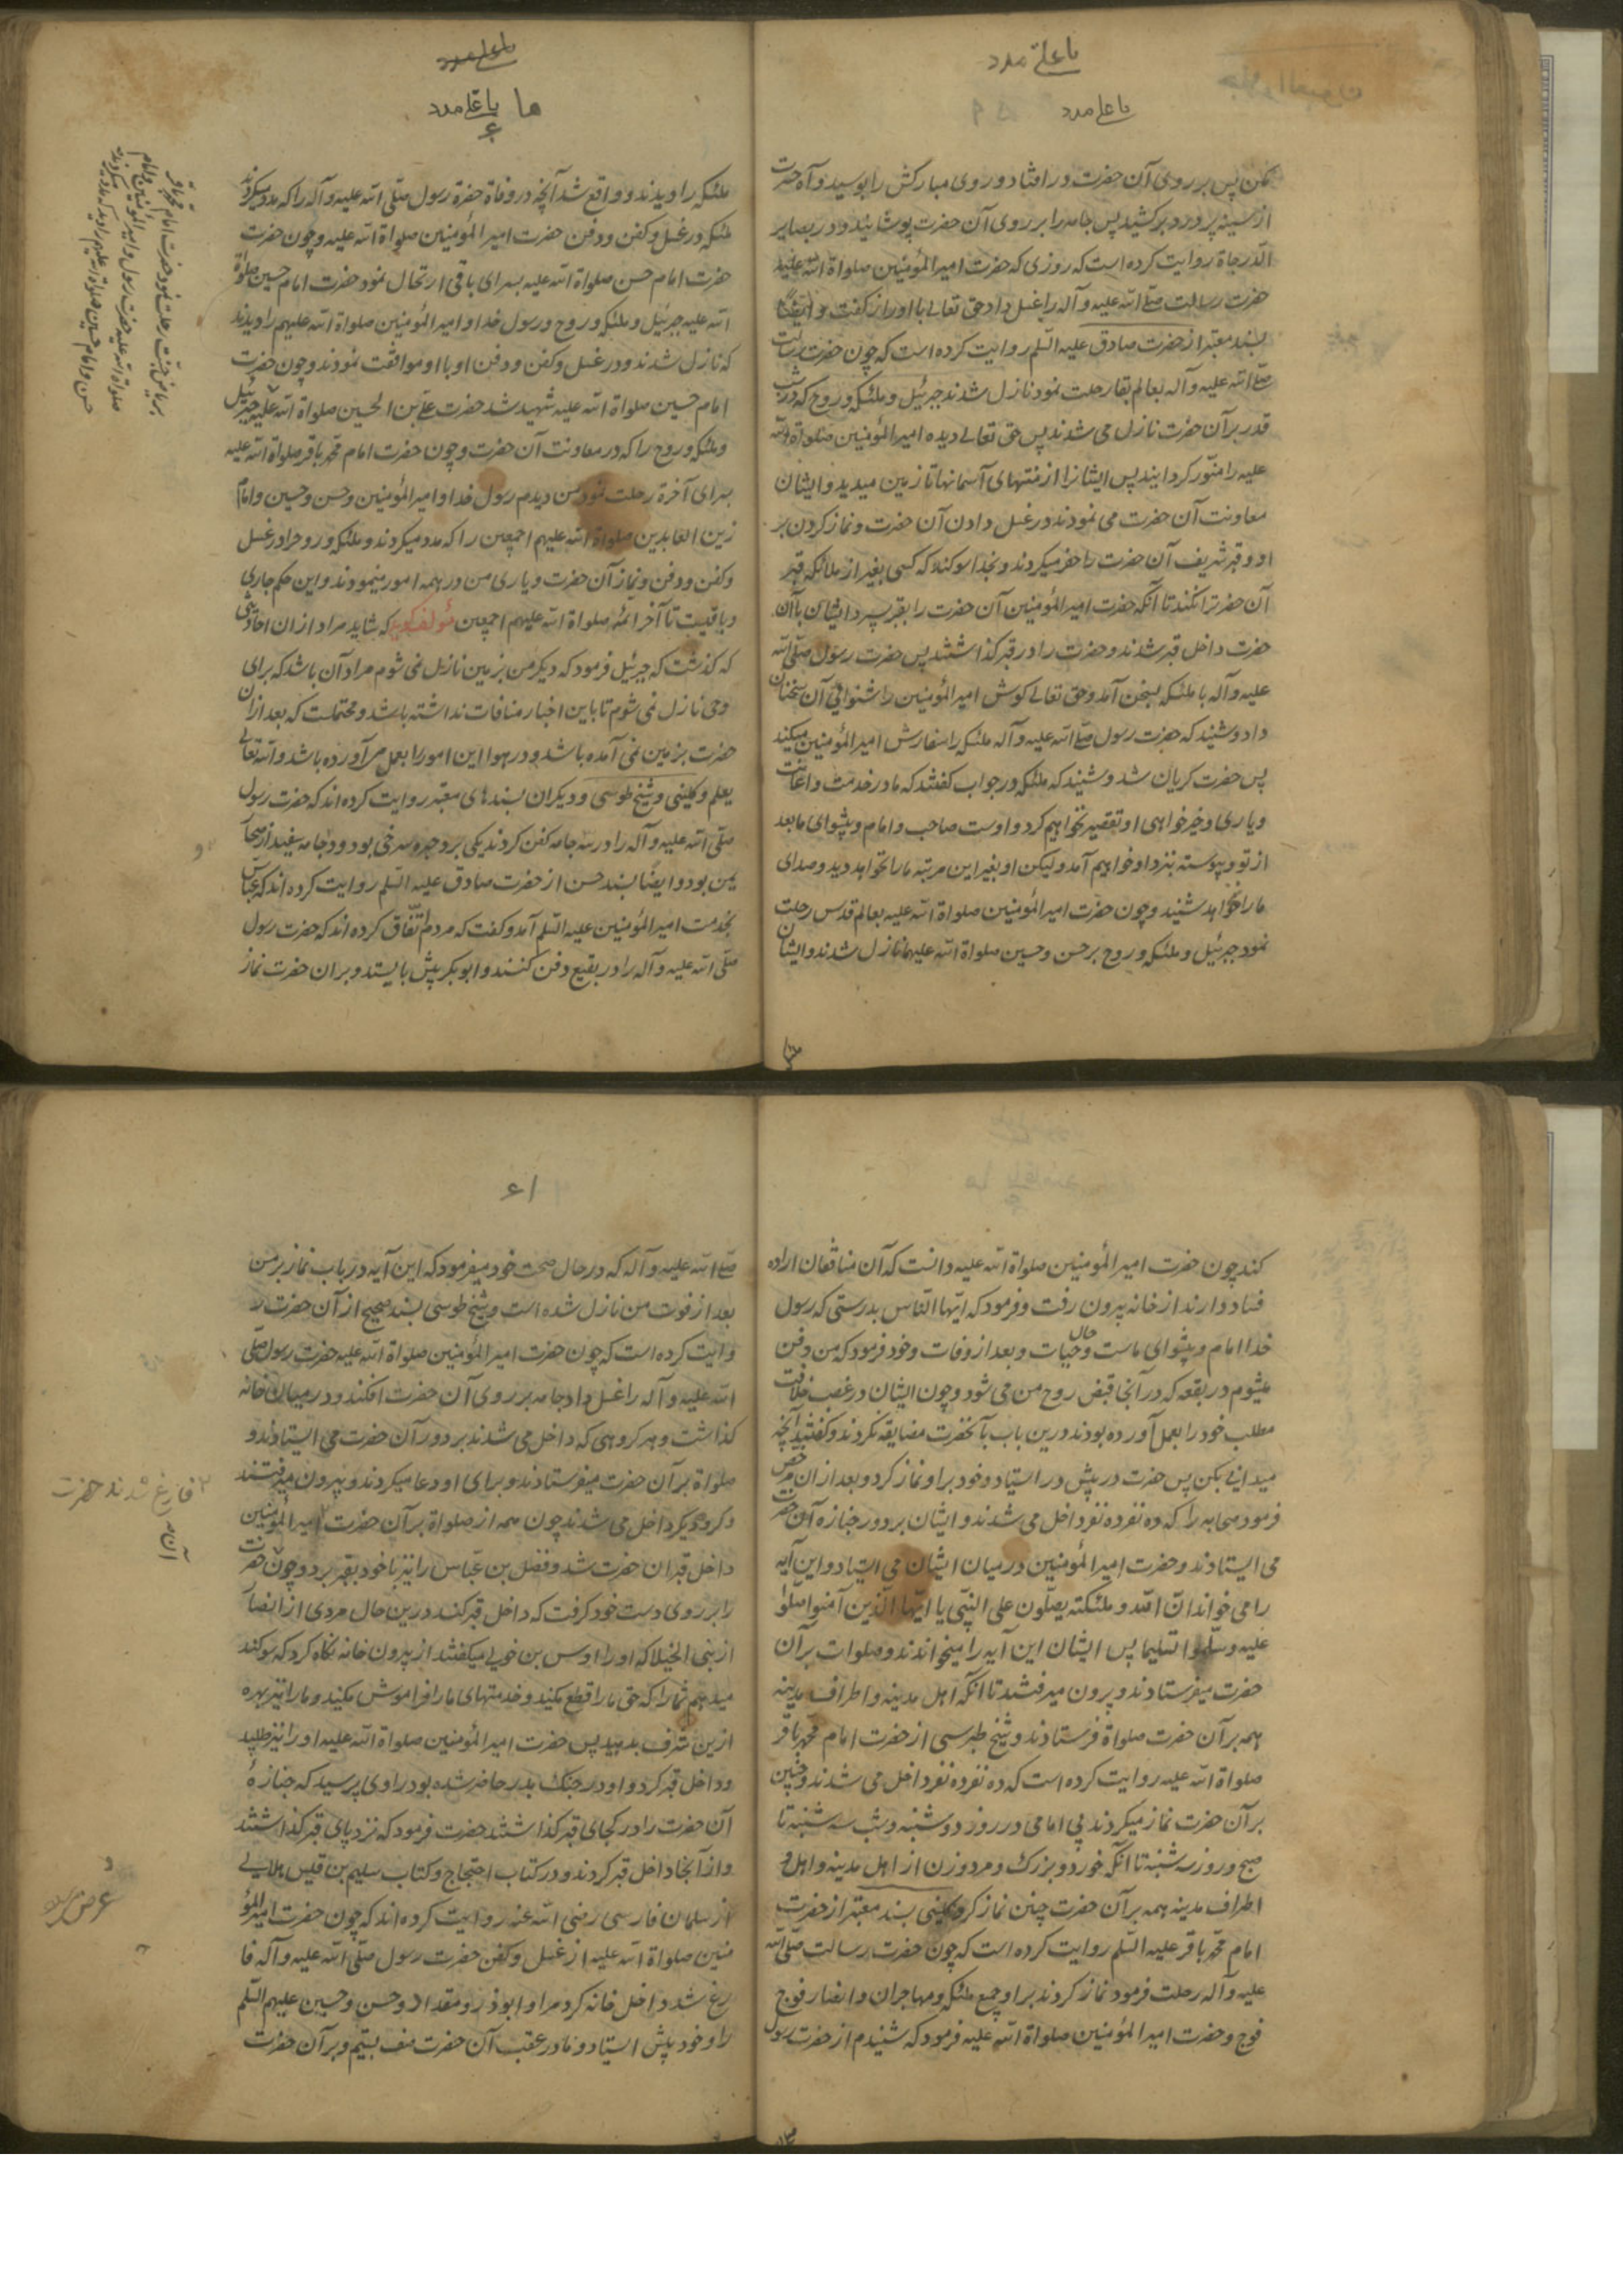 یا علی مدد
یا علی مدد
کن پس بر روی آن حضرت در افتاد و روی مبارکش را بوسید و آه حسرت
از سینه پر درد برکشید پس جامه را بر روی آن حضرت پوشانید و در بصایر
الدرجات روایت کرده است که روزی که حضرت امیر المؤمنین صلواة الله علیه
حضرت رسالت صلی الله علیه و آله را غسل داد حق تعالی با او راز گفت و ایضا
بسند معتبر از حضرت صادق علیه السلم روایت کرده است که چون حضرت رسالت
صلی الله علیه و آله بعالم بقا رحلت نمود نازل شدند جبرئیل و ملئکه و روح که در شب
قدر بر آن حضرت نازل می شدند پس حق تعالی دیده امیر المؤمنین صلواة الله
علیه را منور گردانید پس ایشانرا از منتهای آسمانها تا زمین میدید و ایشان
معاونت آن حضرت می نمودند در غسل دادن آن حضرت و نماز کردن بر
او و قبر شریف آن حضرت را حفر میکردند و بخدا سوکند که کسی بغیر از ملائکه قبر
آن حضرت را نکند تا آنکه حضرت امیر المؤمنین آن حضرت را بقبر سپرد ایشان با آن
حضرت داخل قبر شدند و حضرت را در قبر گذاشتند پس حضرت رسول صلی الله
علیه و آله با ملئکه بسخن آمد و حق تعالی گوش امیر المؤمنین را شنوائی آن سخنان
داد و شنید که حضرت رسول صلی الله علیه و آله ملئکه را سفارش امیر المؤمنین میکند
پس حضرت گریان شد و شنید که ملئکه در جواب گفتند که ما در خدمت و اعانت
و یاری و خیر خواهی او تقصیر نخواهیم کرد و اوست صاحب و امام و پیشوای ما بعد
از تو و پیوسته بنزد او خواهیم آمد و لیکن او بغیر این مرتبه ما را نخواهد دید و صدای
ما را نخواهد شنید و چون حضرت امیر المؤمنین صلواة الله علیه بعالم قدس رحلت
نمود جبرئیل و ملئکه و روح بر حسن و حسین صلواة الله علیهما نازل شدند و ایشان
یا علی مدد
یا علی مدد
ملئکه را دیدند و واقع شد آنچه در وفاة حضرة رسول صلی الله علیه و آله را که مدد میکردند
ملئکه در غسل و کفن و دفن حضرت امیر المؤمنین صلواة الله علیه و چون حضرت
حضرت امام حسن صلواة الله علیه بسرای باقی ارتحال نمود حضرت امام حسین صلواة
الله علیه جبرئیل و ملئکه و روح و رسول خدا و امیر المؤمنین صلواة الله علیهم را دیدند
که نازل شدند و در غسل و کفن و دفن او با او موافقت نمودند و چون حضرت
امام حسین صلواة الله علیه شهید شد حضرت علی بن الحسین صلواة الله علیه جبرئیل
و ملئکه و روح را که در معاونت آن حضرت و چون حضرت امام محمد باقر صلواة الله علیه
بسرای آخرة رحلت نمود من دیدم رسول خدا و امیر المؤمنین و حسن و حسین و امام
زین العابدین صلواة الله علیهم اجمعین را که مدد میکردند و ملئکه و روح را در غسل
و کفن و دفن و نماز آن حضرت و یاری من در همه امور مینمودند و این حکم جاری
و باقیست تا آخر ائمه صلواة الله علیهم اجمعین مؤلف گوید که شاید مراد از ان احادیثی
که گذشت که جبرئیل فرمود که دیگر من بزمین نازل نمی شوم مراد آن باشد که برای
وحی نازل نمی شوم تا باین اخبار منافات نداشته باشد و محتملست که بعد از ان
حضرت بزمین نمی آمده باشد و در هوا این امور را بعمل می آورده باشد و الله تعالی
یعلم و کلینی و شیخ طوسی و دیگران بسندهای معتبر روایت کرده اند که حضرت رسول
صلی الله علیه و آله را در سه جامه کفن کردند یکی برد حبره سرخی بود و دو جامه سفید از صحار
یمن بود و ایضا بسند حسن از حضرت صادق علیه السلم روایت کرده اند که عباس
بخدمت امیر المؤمنین علیه السلم آمد و گفت که مردم اتفاق کرده اند که حضرت رسول
صلی الله علیه و آله را در بقیع دفن کنند و ابو بکر پیش بایستد و بر ان حضرت نماز
بریاض جنت رحلت نمود حضرت امام محمد باقر
صلواة الله علیه حضرت رسول و امیر المؤمنین و امام
حسن و امام حسین صلواة الله علیهم را دید که مدد میکردند
کند چون حضرت امیر المؤمنین صلواة الله علیه دانست که آن منافقان اراده
فساد دارند از خانه بیرون رفت و فرمود که ایها الناس بدرستی که رسول
خدا امام و پیشوای ماست در حال حیات و بعد از وفات و خود فرمود که من دفن
میشوم در بقعه که در آنجا قبض روح من می شود و چون ایشان در غصب خلافت
مطلب خود را بعمل آورده بودند درین باب با آنحضرت مضایقه نکردند و گفتند آنچه
میدانی بکن پس حضرت در پیش در استاد و خود بر او نماز کرد و بعد از ان مرخص
فرمود صحابه را که ده نفر ده نفر داخل می شدند و ایشان بر دور جنازه آن حضرت
می ایستادند و حضرت امیر المؤمنین در میان ایشان می ایستاد و این آیه
را می خواند ان الله و ملئکته یصلون علی النبی یا ایها الذین آمنوا صلوا
علیه و سلموا تسلیما پس ایشان این آیه را میخواندند و صلوات بر آن
حضرت میفرستادند و بیرون میرفتند تا آنکه اهل مدینه و اطراف مدینه
همه بر آن حضرت صلواة فرستادند و شیخ طبرسی از حضرت امام محمد باقر
صلواة الله علیه روایت کرده است که ده نفر ده نفر داخل می شدند و چنین
بر آن حضرت نماز میکردند بی امامی در روز دوشنبه و شب سه شنبه تا
صبح و روز سه شنبه تا آنکه خورد و بزرگ و مرد و زن از اهل مدینه و اهل
اطراف مدینه همه بر آن حضرت چنین نماز کردند و کلینی بسند معتبر از حضرت
امام محمد باقر علیه السلم روایت کرده است که چون حضرت رسالت صلی الله
علیه و آله رحلت فرمود نماز کردند بر او جمیع ملئکه و مهاجران و انصار فوج
فوج و حضرت امیر المؤمنین صلواة الله علیه فرمود که شنیدم از حضرت رسول
۶۱
صلی الله علیه و آله که در حال صحت خود میفرمود که این آیه در باب نماز بر من
بعد از فوت من نازل شده است و شیخ طوسی بسند صحیح از آن حضرت ر
وایت کرده است که چون حضرت امیر المؤمنین صلواة الله علیه حضرت رسول صلی
الله علیه و آله را غسل داد جامه بر روی آن حضرت افکند و در میان خانه
گذاشت و هر گروهی که داخل می شدند بر دور آن حضرت می ایستادند و
صلواة بر آن حضرت میفرستادند و برای او دعا میکردند و بیرون میرفتند
و گروه دیگر داخل می شدند چون همه از صلواة بر آن حضرت امیر المؤمنین
داخل قبر ان حضرت شد و فضل بن عباس را نیز با خود بقبر برد و چون حضرت
را بر روی دست خود گرفت که داخل قبر کند درین حال مردی از انصار
از بنی الخیلا که او را اوس بن خولی میگفتند از بیرون خانه نگاه کرد که سوکند
میدهم شما را که حق ما را قطع مکنید و خدمتهای ما را فراموش مکنید و ما را نیز بهره
ازین شرف بدهید پس حضرت امیر المؤمنین صلواة الله علیه او را نیز طلبید
و داخل قبر کرد و او در جنگ بدر حاضر شده بود راوی پرسید که جنازهٔ
آن حضرت را در کجای قبر گذاشتند حضرت فرمود که نزد پای قبر گذاشتند
و از آنجا داخل قبر کردند و در کتاب احتجاج و کتاب سلیم بن قیس هلالی
از سلمان فارسی رضی الله عنه روایت کرده اند که چون حضرت امیر المؤ
منین صلواة الله علیه از غسل و کفن حضرت رسول صلی الله علیه و آله فا
رغ شد داخل خانه کرد مرا و ابوذر و مقداد و حسن و حسین علیهم السلم
را و خود پیش ایستاد و ما در عقب آن حضرت صف بستیم و بر آن حضرت
فارغ شدند حضرت